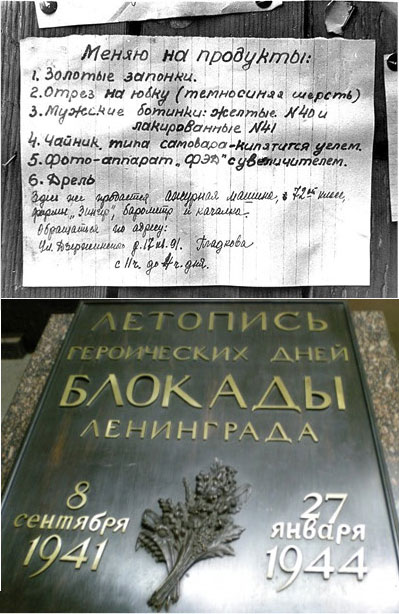 Меняю на продукты:
1. Золотые запонки.
2. Отрез на юбку (темносиняя шерсть)
3. Мужские ботинки: желтые N40 и
лакированные N41
4. Чайник типа самовара-кипятится углем.
5. Фото-аппарат "ФЭД" с увеличителем.
6. Дрель
Здесь же продается ажурная машина, в 72
"Зингер", барометр и качалка.
Обращаться по адресу:
Ул. Дзержинского д.17 кв. 91. Гладкова
с 11 ч. до 4 ч. дня.
ЛЕТОПИСЬ
ГЕРОИЧЕСКИХ ДНЕЙ
БЛОКАДЫ
ЛЕНИНГРАДА
8
сентября
1941
27
января
1944